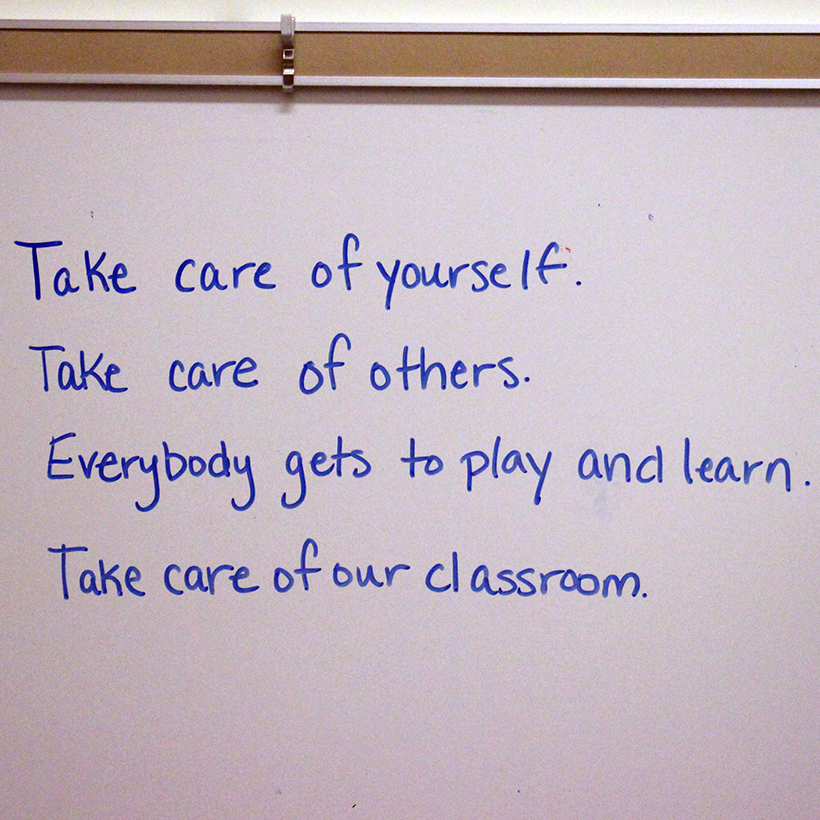 Take care of yourself.
Take care of others.
Everybody gets to play and learn.
Take care of our classroom.